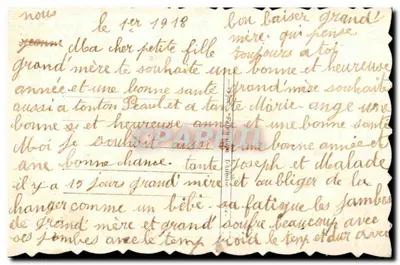 nous
le 1er 1918
bon baiser grand
mère qui pense
toujours a toi
Jeanne Ma cher petite fille
grand'mère te souhaite une bonne et heureuse
année et une bonne santé grand mère souhaite
aussi a tonton Paul et a tante Marie-ange une
bonne et heureuse année et une bonne santé
Moi je souhait aussi une bonne année et
une bonne chance. tante Joseph et Malade
il y a 15 jours grand mère et aubliger de la
changer comme un bébé. sa fatigue les jambes
de grand mère et grand soufre beaucoup avec
ses jambes avec le temp froid le temp et dur avec